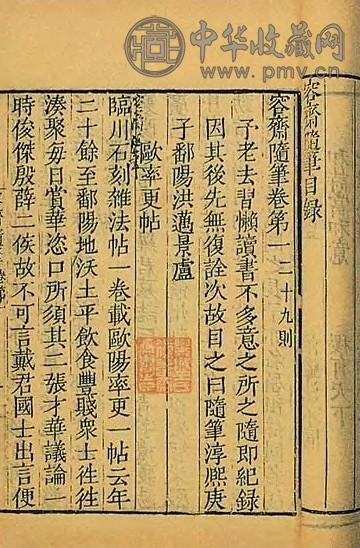 中华收藏网
www.pmv.cn
容齋隨筆目錄
容齋隨筆卷第一 二十九則
予老去習懶讀書不多意之所之隨即紀錄
因其後先無復詮次故目之曰隨筆淳熙庚
子鄱陽洪邁景盧
歐率更帖
臨川石刻雜法帖一卷載歐陽率更一帖云年
二十餘至鄱陽地沃土平飲食豐賤衆士徃徃
湊聚每日賞華恣口所須其二張才華議論一
時俊傑殷薛二侯故不可言戴君國士出言便